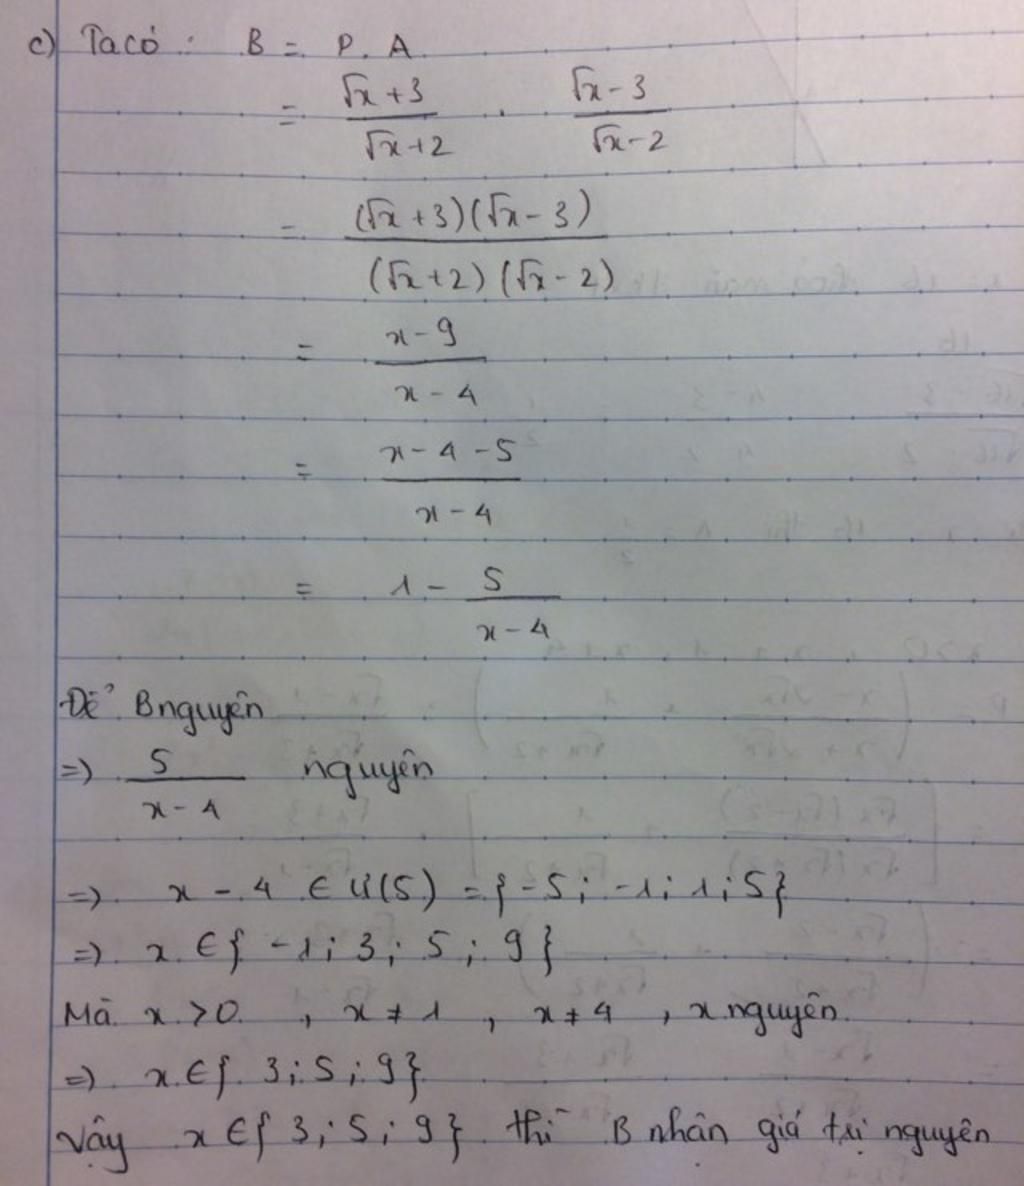 c) Ta có : B = P . A
= \frac{\sqrt{x}+3}{\sqrt{x}+2} . \frac{\sqrt{x}-3}{\sqrt{x}-2}
= \frac{(\sqrt{x}+3)(\sqrt{x}-3)}{(\sqrt{x}+2)(\sqrt{x}-2)}
= \frac{x-9}{x-4}
= \frac{x-4-5}{x-4}
= 1 - \frac{5}{x-4}
Để B nguyên
=> \frac{5}{x-4} nguyên
=> x - 4 ∈ Ư(5) = {-5; -1; 1; 5}
=> x ∈ { -1; 3; 5; 9}
Mà x > 0 , x ≠ 1 , x ≠ 4 , x nguyên
=> x ∈ { 3; 5; 9}
Vậy x ∈ { 3; 5; 9} thì B nhận giá trị nguyên